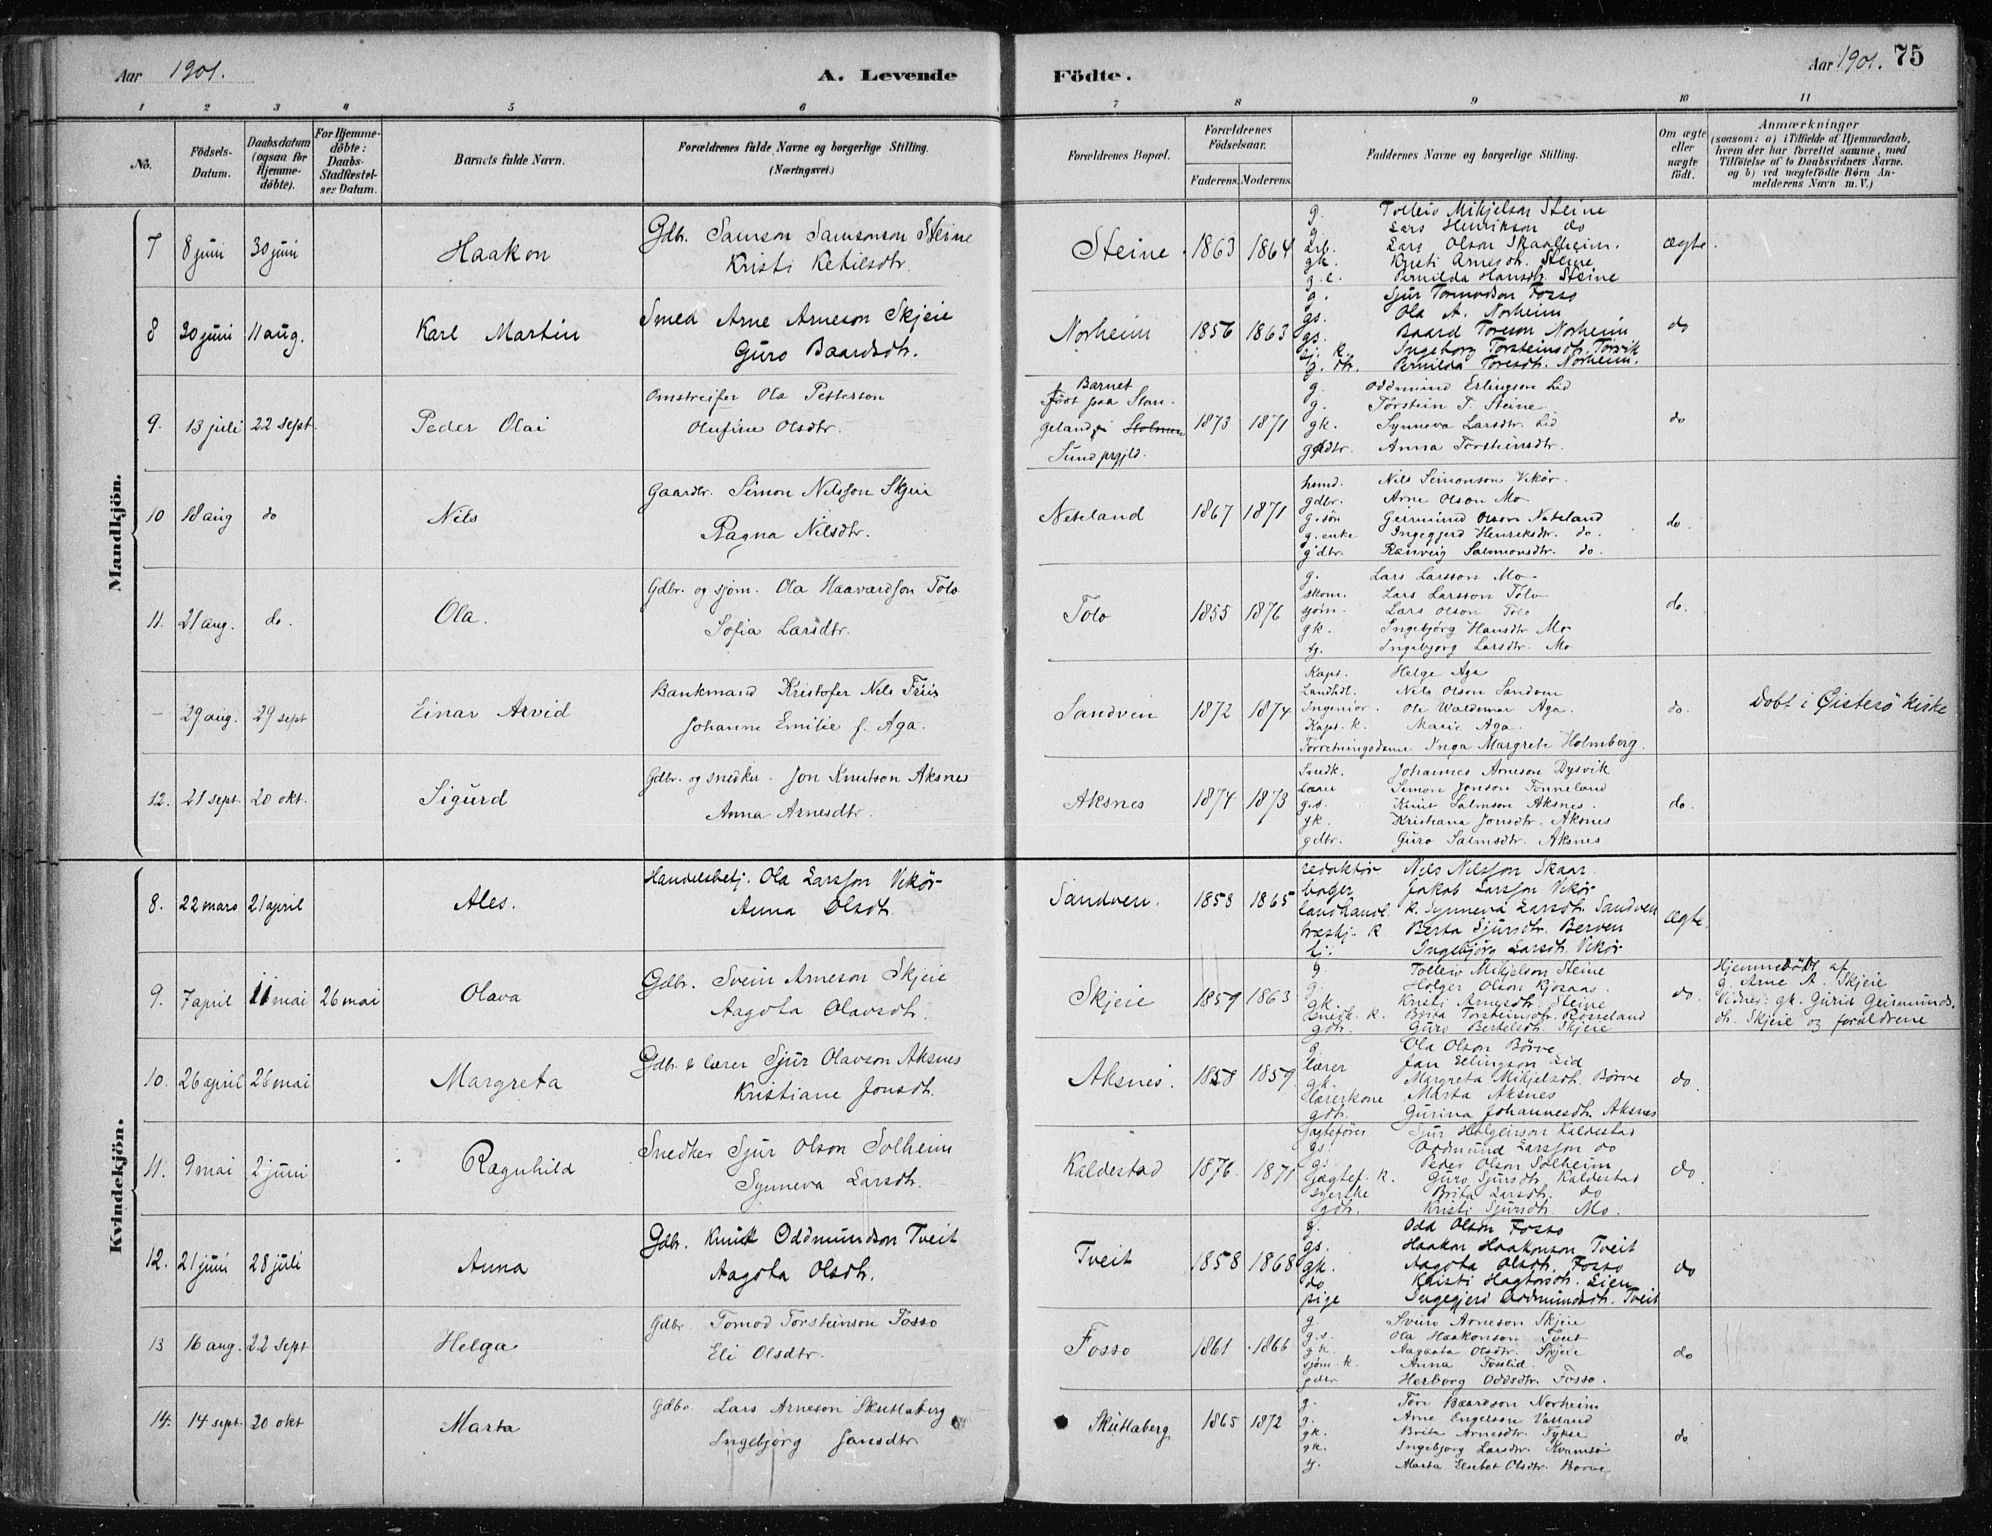 Aar 1901.
A. Levende Födte.
Aar 1901. 75
1 2 3 4 5 6 7 8 9 10 11
Nô.
Födsels-Datum.
Daabsdatum (ogsaa for Hjemmedöbte).
For Hjemmedöbte: Daabs-Stadfæstelses Datum.
Barnets fulde Navn.
Forældrenes fulde Navne og borgerlige Stilling. (Næringsvei.)
Forældrenes Bopæl.
Forældrenes Födselsaar.
Faderens. Moderens.
Faddernes Navne og borgerlige Stilling.
Om ægte eller uægte födt.
Anmærkninger
(saasom: a) i Tilfælde af Hjemmedaab,
hvem der har forrettet samme, med
Tilföielse af to Daabsvidners Navne.
og b) ved uægtefödte Børn An-
melderens Navn m. V.)
Mandkjön.
7 8 juni 30 juni Haakon Gdbr. Samson Samsonson Steine
Kristi Ketilsdtr.
Steine. 1863 1864
g. Tolleiv Mikjelson Steine
g. Lars Henrikson do
Lars Olson Skaalheim.
gk. Kristi Arnesdtr. Steine
g.e. Pernilda Hansdtr. Steine
ægte.
8 30 juni 11 aug. Karl Martin Smed Arne Arneson Skjeie
Guro Baardsdtr.
Norheim 1856 1863
g. Sjur Tormodson Fosso
gs. Ola A. Norheim
gs. Baard Toreson Norheim
k. Ingeborg Torsteinsdtr. Torvik
g. dtr. Pernilda Toresdtr. Norheim.
do
9. 13 juli 22 sept. Peder Olai Omstreifer Ola Petterson
Olufine Olsdtr.
Barnet
født paa Stan-
geland, i Holmen
Sund prgjld.
1873 1871
g. Oddmund Erlingson Lid
g. Torstein T. Steine
gk. Synneva Larsdtr. Lid
gdtr. Anna Torsteinsdtr.
do
10 18 aug do Nils Gaardbr. Simon Nilsson Skjeie
Ragna Nilsdtr.
Neteland 1867 1871
husmd. Nils Simonson Vikør.
gdbr. Arne Olson Mo
g.søn Geirmund Olson Neteland
g.enke Ingegjerd Henriksdtr. do.
g'dtr. Ranveig Salmonsdtr. do.
do.
11. 21 aug. do. Ola. Gdbr. og sjøm. Ola Haavardson Tolo
Sofia Larsdtr.
Tolo 1855 1876
g. Lars Larsson Mo
skom. Lars Larsson Tolo
sjøm. Lars Olson Tolo
gk. Ingebjørg Hansdtr Mo
tj. Ingebjørg Larsdtr. Mo
do.
– 29 aug. 29 sept Einar Arvid Bankmand Kristofer Nils Friis
Johanne Emilie f. Aga.
Sandven 1872 1874
Kapt. Helge Aga
Landhdl. Nils Olson Sandven
Ingeniør. Ole Waldemar Aga.
Kapt. k. Marie Aga.
Forretningsdame Inga Margrete Holmberg.
do. Døbt i Øistesø kirke
12. 21 sept. 20 okt. Sigurd Gdbr. og snedker. Jon Knutson Aksnes
Anna Arnesdtr.
Aksnes 1874 1873
Snedk. Johannes Arneson Dysvik
Lærer Simon Jonson Tonneland
g.s. Knut Salmson Aksnes.
gk. Kristiana Jonsdtr. Aksnes
gdbr. Guro Salmsdtr. Aksnes
do.
Kvindekjön.
8. 22 mars 21 april Ales. Handelsbetj. Ola Larsson Vikør
Anna Olsdtr.
Sandven. 1858 1865
redaktør Nils Nilsson Skaar
bager Jakob Larsson Vikør
landhandl. k. Synneva Larsdtr. Sandven
k. Berta Sjursdtr. Berven
tj. Ingebjørg Larsdtr. Vikør
ægte.
9. 7 april 11 mai 26 mai Olava Gdbr. Svein Arneson Skjeie
Aagota Olavsdtr.
Skjeie 1859 1863
g. Tolleiv Mikjelson Steine
g. Holger Olson Kjosaas
gk. Kristi Arnesdtr. Steine
snedk. k. Brita Torsteinsdtr. Røsseland
gdtr. Guro Bertelsdtr. Skjeie
do. Hjemmedøbt af
g. Arne A. Skjeie
Vidner: gk. Gurid Geirmunds-
dtr. Skjeie og forældrene
10. 26 april 26 mai Margreta Gdbr. & lærer Sjur Olavson Aksnes
Kristiane Jonsdtr.
Aksnes. 1858 1859
g. Ola Olson Børve
lærer Jan Ellingson Lid
gk. Margreta Mikjelsdtr. Børve
lærerkone Marta Aksnes
gdtr. Gurina Johannesdtr. Aksnes
do.
11. 9 mai 2 juni Ragnhild Snedker Sjur Olson Solheim
Synneva Larsdtr.
Kaldestad 1876. 1871
Jagtefører Sjur Holgeirson Kaldestad
gs. Oddmund Larsson do
gs. Peder Olson Solheim
Jagtef. k. Guro Sjursdtr. Kaldestad
Brita Larsdtr. do
gdtr. Kristi Sjursdtr. Mo.
do.
12. 21 juni 28 juli Anna Gdbr. Knut Oddmundson Tveit
Aagota Olsdtr.
Tveit 1858 1868
g. Odd Olson Fosso
gs. Haakon Haakonson Tveit
gk. Aagota Olsdtr. Fosso
do Kristi Hagtorsdtr. Lien
pige Ingegjerd Oddmundsdtr. Tveit
do
13 16 aug. 22 sept Helga Gdbr Tomod Torsteinson Fosso
Eli Olsdtr.
Fosso 1861 1866
g. Svein Arneson Skjeie
g.s. Ola Haakonson Tveit
gk. Aagaata Olsdtr. Skjeie
sjøm. k. Anna Fosslid
gdtr Herborg Oddsdtr. Fosso.
do
14. 14 sept. 20 okt Marta Gdbr. Lars Arneson Skutlaberg
Ingebjørg Jonsdtr
Skutlaberg 1865 1872
g. Tore Baardson Norheim
g. Arne Engelson Valland
gk. Brita Arnesdtr. Tykse
gk. Ingebjørg Larsdtr. Kvamsø
tj. Marta Elsebet Olsdtr. Børve
do